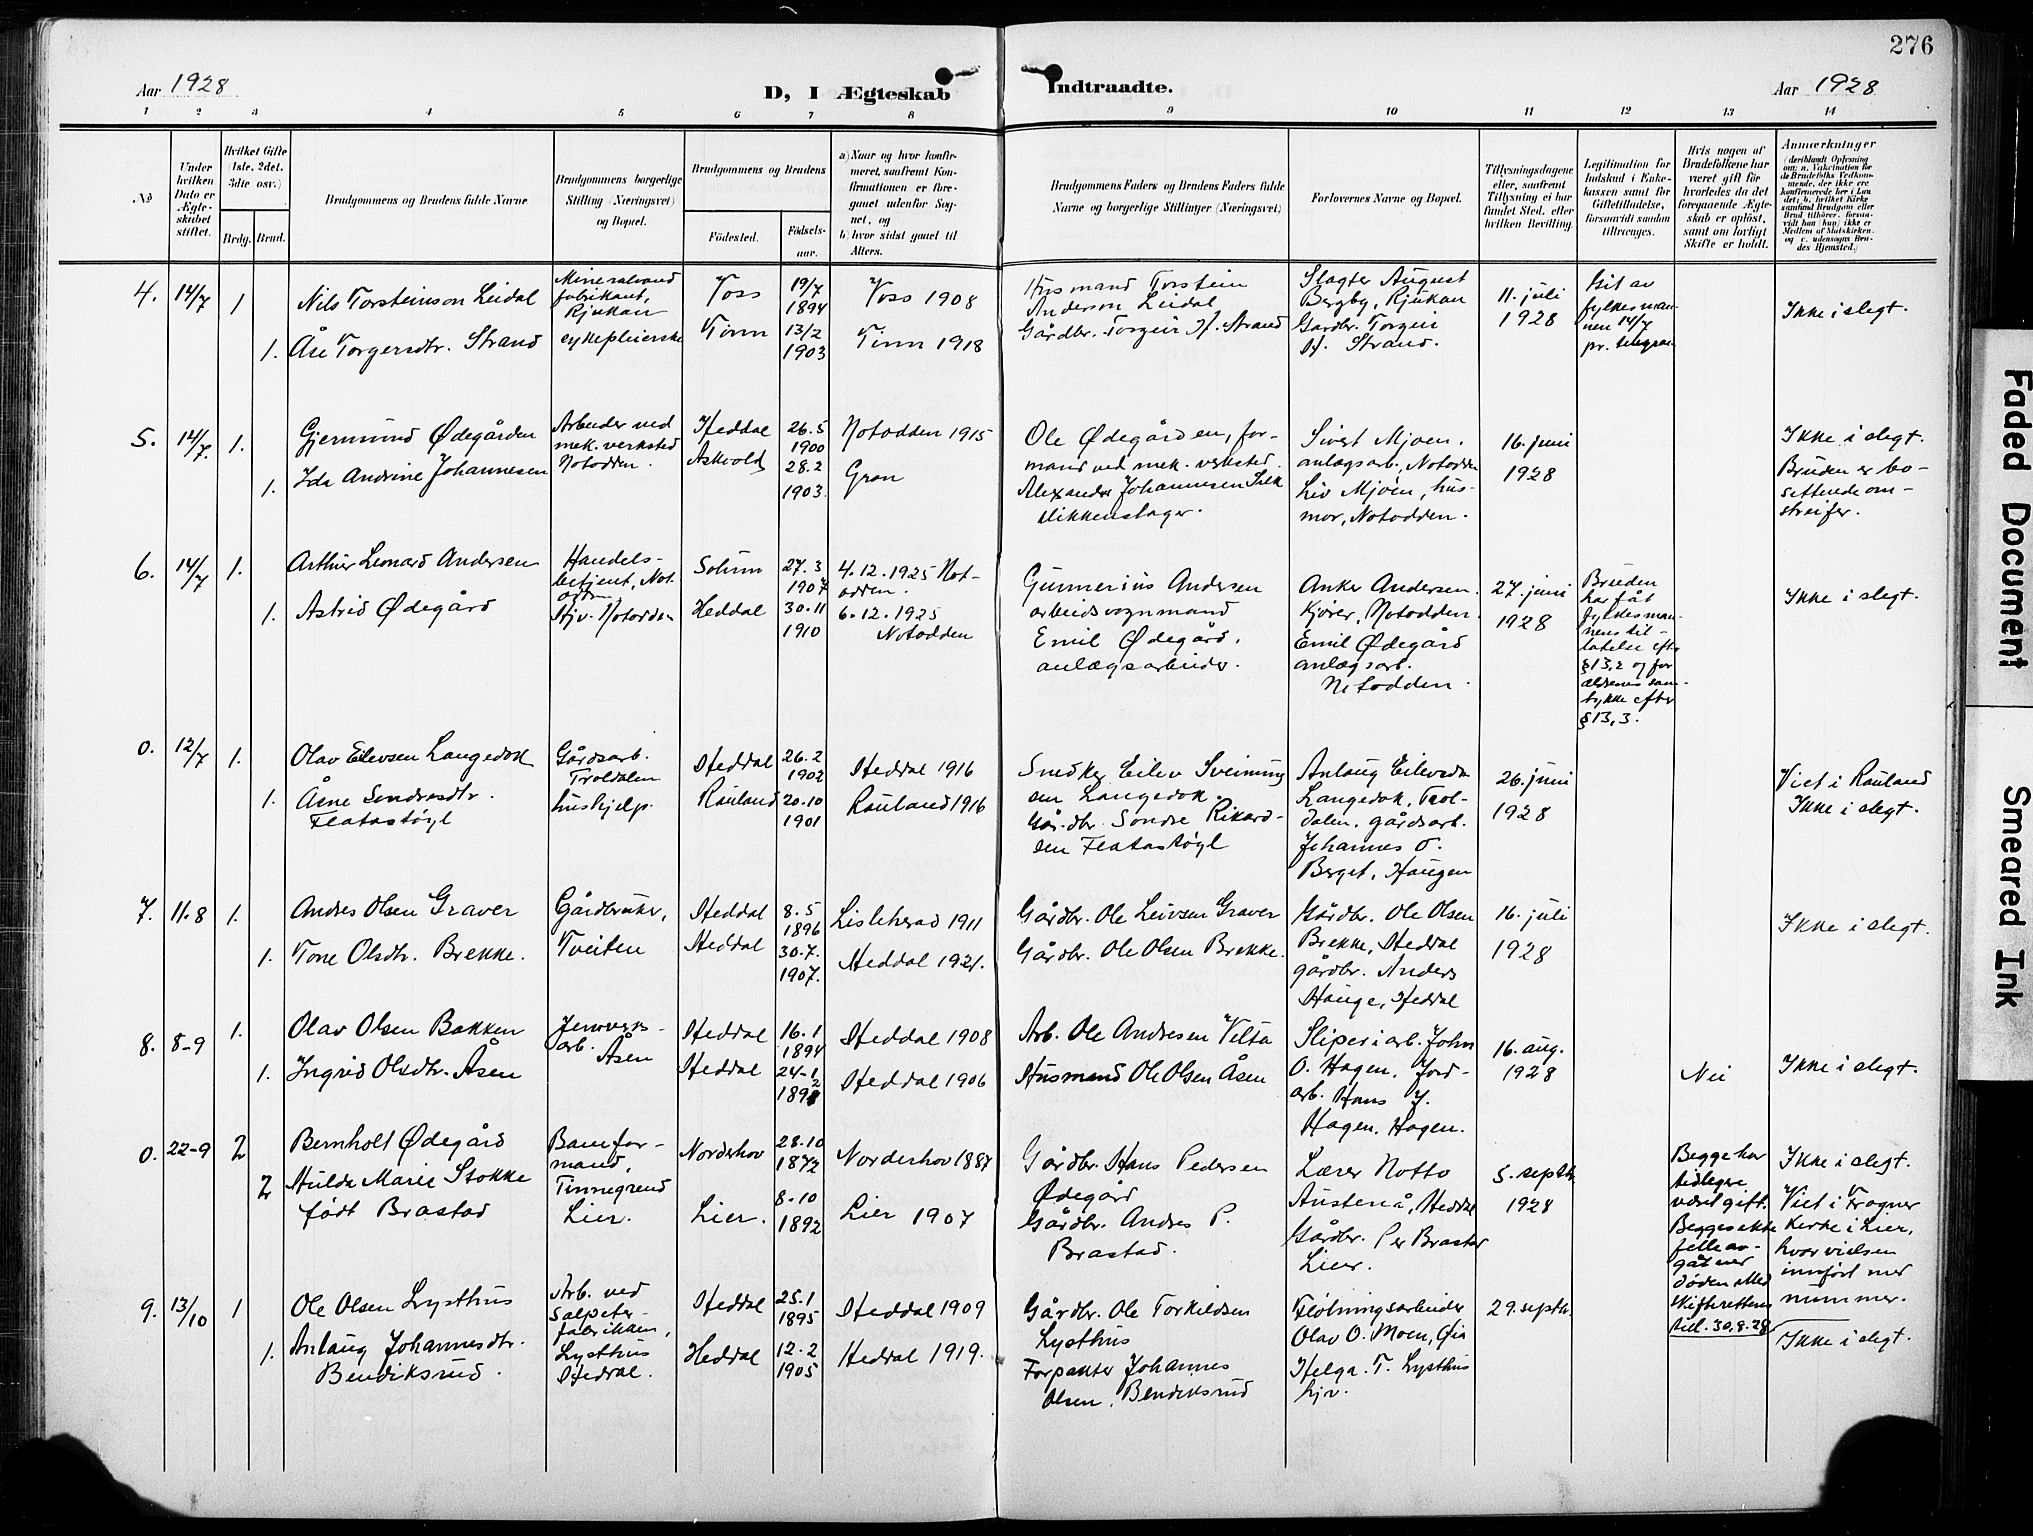 276
Aar 1928
D, I Ægteskab Indtraadte.
Aar 1928
1 2 3 4 5 6 7 8 9 10 11 12 13 14
No.
Under hvilken Dato er Ægteskabet stiftet.
Hvilket Gifte (1ste, 2det, 3die osv.)
Brdg. Brud.
Brudgommens og Brudens fulde Navne.
Brudgommens borgerlige Stilling (Næringsvei) og Bopæl.
Brudgommens og Brudens
Fødested.
Fødselsaar.
a) Naar og hvor konfirmeret, saafremt Konfirmationen er foregaaet udenfor Sognet, og
b) hvor sidst gaaet til Alters.
Brudgommens Faders og Brudens Faders fulde Navne og borgerlige Stillinger (Næringsvei)
Forlovernes Navne og Bopæl.
Tillysningsdagene eller, saafremt Tillysning ei har fundet Sted, efter hvilken Bevilling.
Legitimation for Indskud i Enkekassen samt for Giftetilladelse, forsaavidt saadan tiltrænges.
Hvis nogen af Brudefolkene har været gift før, hvorledes da det foregaaende Ægteskab er opløst, samt om lovligt Skifte er holdt.
Anmærkninger
4. 14/7 1
Nils Torsteinson Lidal
Mineralvand
fabrikant,
Rjukan
Voss
19/7
1894
Voss 1908
Husmand Torstein
Anderson Lidal
Slagter August
Bergby, Rjukan
11. juli
1928
fylkesman-
nen 14/7
pr. telegram
Ikke i slegt.
1. Åse Torgersdtr. Strand
sykepleierske
Tinn
13/2
1903
Tinn 1918
Gårdbr. Torgeir H. Strand
Gardbr. Torgeir
H. Strand.
5. 14/7. 1.
Gjermund Ødegården
Arbeider ved
mek. verksted
Notodden.
Heddal
26.5
1900
Notodden 1915
Ole Ødegården, for-
mand ved mek. verksted.
Sivert Mjoen.
anlægsarb., Notodden
16. juni
1928
Ikke i slegt.
Bruden er bo-
settende om-
streifer.
1. Ida Andrine Johannesen
Askvold
28.2
1903.
Gran
Alexander Johannesen
blikkenslager.
Liv Mjoen, hus-
mor, Notodden.
6. 14/7 1.
Arthur Leonard Andersen
Handels-
betjent, Not-
odden,
Solum
27.3
1907
4.12.1925 Not-
odden.
Gunnerius Andersen
arbeidsvognmand
Anker Andersen.
Kjører, Notodden.
27. juni
1928
Bruden
har fåt
fylkesman-
nens til-
latelse efter
§13,2 og for
ældrenes sam-
tykke efter
§13,3.
Ikke i slegt.
1. Astrid Ødegård
Hjv. Notodden
Heddal
30.11
1910
6.12.1925
Notodden
Emil Ødegård,
anlægsarbeider.
Emil Ødegård
anlægsarb.
Notodden.
0. 12/7 1.
Olav Eilevsen Langedok
Gårdsarb.
Troldalen
Heddal
26.2
1902
Heddal 1916
Snedker Eilev Sveinung
sen Langedok.
Anlaug Eilevsdtr
Langedok, Trol-
dalen. gårdsarb.
Johannes O.
Berget, Haugen
26. juni
1928
Viet i Rauland
Ikke i slegt.
1. Åsne Sondresdtr.
Flatastøyl
hushjelp.
Rauland
20.10
1901
Rauland 1916
Går.dbr. Sondre Rikard-
sen Flatastøyl
7. 11.8 1.
Andres Olsen Graver
Gårdbruker,
Tveiten
Heddal
8.5
1896
Lisleherad 1911
Gårdbr. Ole Leivsen Graver
Gårdbr. Ole Olsen
Brekke, Heddal
gårdbr. Anders
Hauge, Heddal
16. juli
1928
Ikke i slegt.
1. Tone Olsdtr. Brekke.
Heddal
30.7.
1907.
Heddal 1921.
Gårdbr. Ole Olsen Brekke.
8. 8-9 1.
Olav Olsen Bakken
Jernverks-
arb. Åsen
Heddal
16.1
1894
Heddal 1908
Arb. Ole Andresen Velta
Sliperiarb. John
O. Hagen. Jord-
arb. Hans J.
Hagen. Hagen.
16. aug.
1928
Nei
Ikke i slegt.
1. Ingrid Olsdtr. Åsen
Heddal
24-1
1892
Heddal 1906
Husmand Ole Olsen Åsen
0. 22-9 2
Bernholt Ødegård
Banefor-
mand,
Tinnegrend
Norderhov
28.10
1872
Norderhov 1887
Gårdbr. Hans Pedersen
Ødegård
Lærer Notto
Austenå, Heddal
5. septbr.
1928
Begge har
tidligere
været gift.
Begges ekte
felle av-
gåt ved
døden
Skifterettens
till. 30.8.28
Ikke i slegt.
Viet i Frogner
Kirke i Lier,
hvor vielsen
innført med
nummer.
2 Hulda Marie Stokke
født Brastad
Lier.
Lier.
8-10
1892
Lier 1907
Gårdbr. Andres P.
Brastad.
Gårdbr. Per Brastad
Lier.
9. 13/10 1
Ole Olsen Lysthus
Arb. ved
Salpeter-
fabrikken,
Lysthus
Heddal.
Heddal
25.1
1895
Heddal 1909
Gårdbr. Ole Torkildsen
Lysthus
Fløtningsarbeider
Olav O. Moen,
Helga T. Lysthus
hjv.
29. septbr.
Ikke i slegt.
1. Anlaug Johannesdtr.
Bendiksrud.
Heddal
12.2
1905
Heddal 1919.
Forpakter Johannes
Olsen, Bendiksrud
Faded Document
Smeared Ink